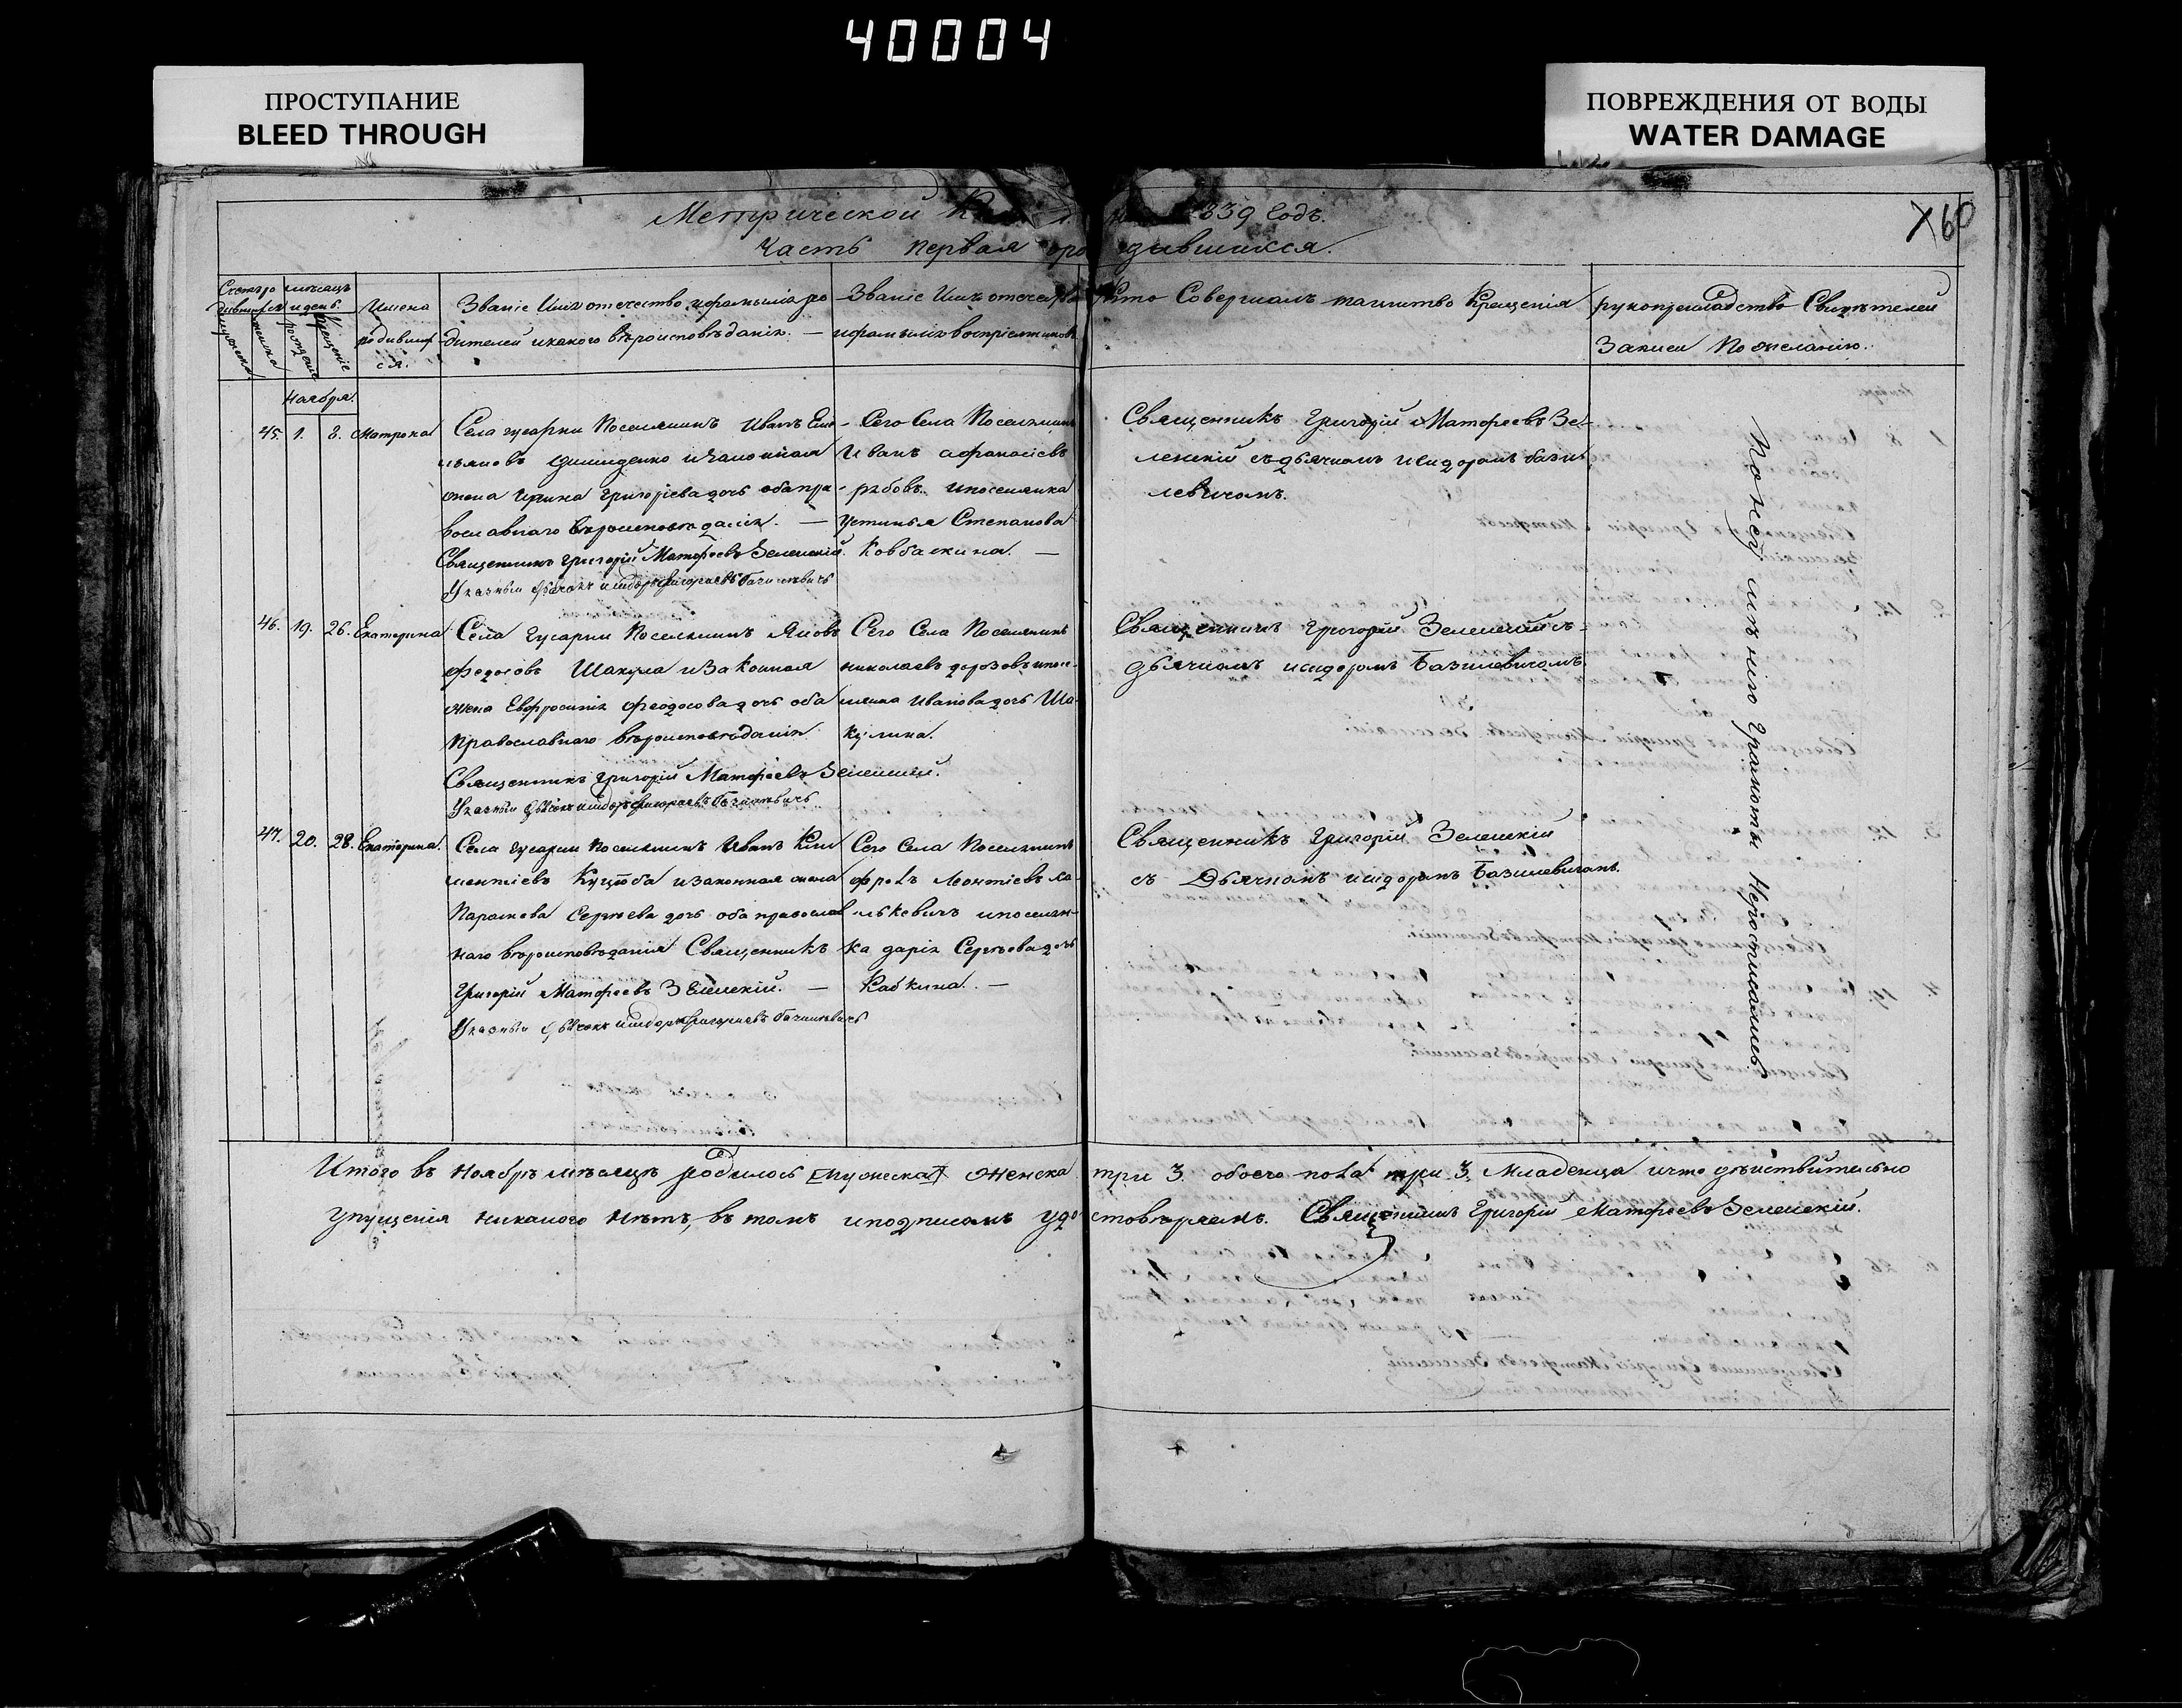 40004
ПРОСТУПАНИЕ
BLEED THROUGH
ПОВРЕЖДЕНИЯ ОТ ВОДЫ
WATER DAMAGE
Метрической 839 Годъ.
160
Часть первая
Имена
родивших-
ся.
Званіе Имя отечество ифамилія ро-
дителей икакого вѣроисповѣданія. —
Званіе Имя отечество
ифамилія воспріемниковъ
Кто Совершалъ таинство Крещенія
рукоприкладство Свидѣтелей
Записи По желанію.
Ноября.
45. 1. 8. Матрона
Села гусарки Поселянинъ Иванъ Еме-
льяновъ изаконная
жена Ирина Григоріева дочь оба пра-
вославнаго вѣроисповѣданія. —
Священникъ Григорій Матфеевъ Зеленскій.
Указный дьячокъ Исидоръ Григориевъ Базилевичъ
Сего Села Поселянинъ
Иванъ афанасіевъ
рябовъ ипоселянка
Устинья Степанова
Ковбаскина. —
Священникъ Григорій Матфеевъ Зе-
ленскій съдьячкомъ Исидоромъ бази-
левичомъ.
46. 19. 26. Екатерина
Села Гусарки Поселянинъ Яковъ
Федосовъ Шакула иЗаконная
жена Евфросинія феодосова дочь оба
Православнаго вѣроисповѣданія
Священникъ Григорій Матфеевъ Зеленскій.
Указный дьячокъ Исидоръ Григориевъ Базилевичъ
Сего Села Поселянинъ
николаевъ дорозовъ ипосе-
лянка Иванова дочь Ша-
кулина.
Священникъ Григорій Зеленскій съ-
дьячкомъ исидоромъ Базилевичомъ
47. 20. 28. Екатерина.
Села гусарки поселянинъ Иванъ Кли-
ментіевъ Куцюба изаконная жена
Параскева Сергѣева дочь оба православ-
наго вѣроисповѣданія Священникъ
Григорій Матфеевъ Зеленскій. —
Указный дьячокъ Исидоръ Григориевъ Базилевичъ
Сего Села Поселянинъ
фролъ Леонтіевъ
ипоселян-
ка дарія Сергѣева дочь
Кабкина. —
Священникъ Григорій Зеленскій
съ Дьячкомъ исидоромъ Базилевичомъ.
По неумѣнію Грамоты Неросписались
Итого въ Ноябрѣ мѣсяцѣ родилось [мужеска] женска три 3. обоего пола три 3. Младенца ичто дѣйствительно
упущенія никакого нѣтъ, въ томъ иподписомъ удостовѣряемъ. Священникъ Григорій Матфеевъ Зеленскій.